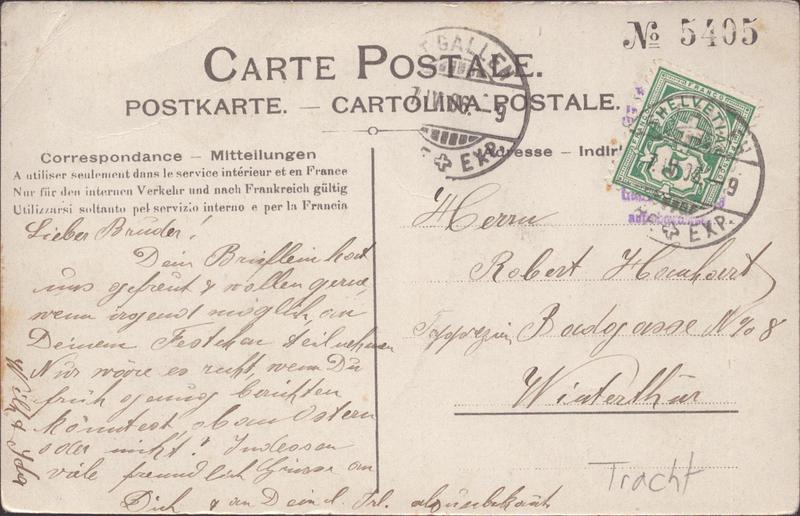 № 5405
CARTE POSTALE.
POSTKARTE. — CARTOLINA POSTALE.
ST GALLEN
7.IV.06.–9
EXP.
FRANCO
HELVETIA
5
–9
EXP.
Correspondance – Mitteilungen
A utiliser seulement dans le service intérieur et en France
Nur für den internen Verkehr und nach Frankreich gültig
Utilizzarsi soltanto pel servizio interno e per la Francia
Adresse – Indir
Lieber Bruder!
Dein Brieflein hat
uns gefreut & wollen gerne,
wenn irgend möglich, an
Deinem Festchen teilnehmen
Nur wäre es recht, wenn Du
früh genug berichten
könntest ob an Ostern
oder nicht? Indessen
viele freundlich Grüsse an
Dich & an Dein l. Frl.
Wilh & Ida
Herrn
Robert
Tapezier Badgasse No 8
Winterthur
Tracht